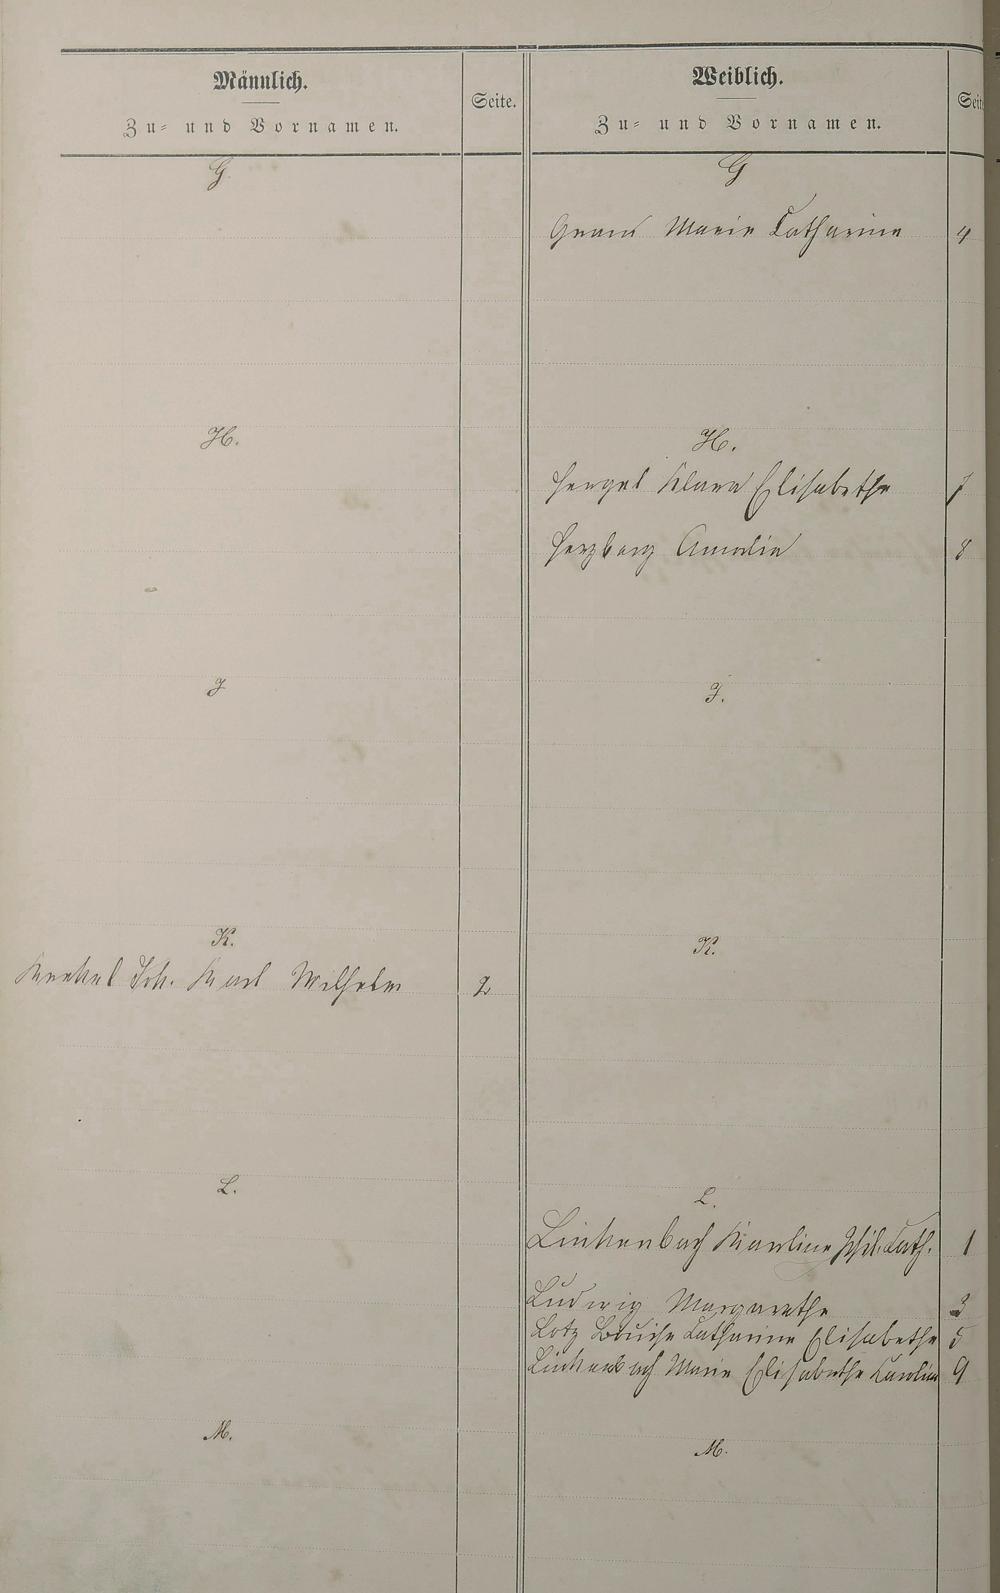 Männlich.
Zu- und Vornamen.
Seite.
G.
H.
J
K.
Kunkel Joh. Karl Wilhelm 2
L.
M.
Weiblich.
Zu- und Vornamen.
Seit
G
Marie Catharine 4
H.
Hengel Klara Elisabethe 7
Herzberg Amalie 8
J.
K.
L.
Linkenbach Karoline Phil. Cath. 1
Ludwig Margarethe 3
Lotz Louise Catharine Elisabethe 5
Linkenbach Marie Elisabethe Karolina 9
M.